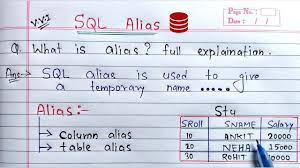 V.V.I
SQL Alias
Page No.:
Date: / /
Q. What is alias? full explaination.
Ans→ SQL alise is used to give
a temporary name
Alias:-
Stu
→ Column alias
→ table alias
SRoll SNAME Salary
10 ANKIT 20000
20 NEHA 15000
30 ROHIT